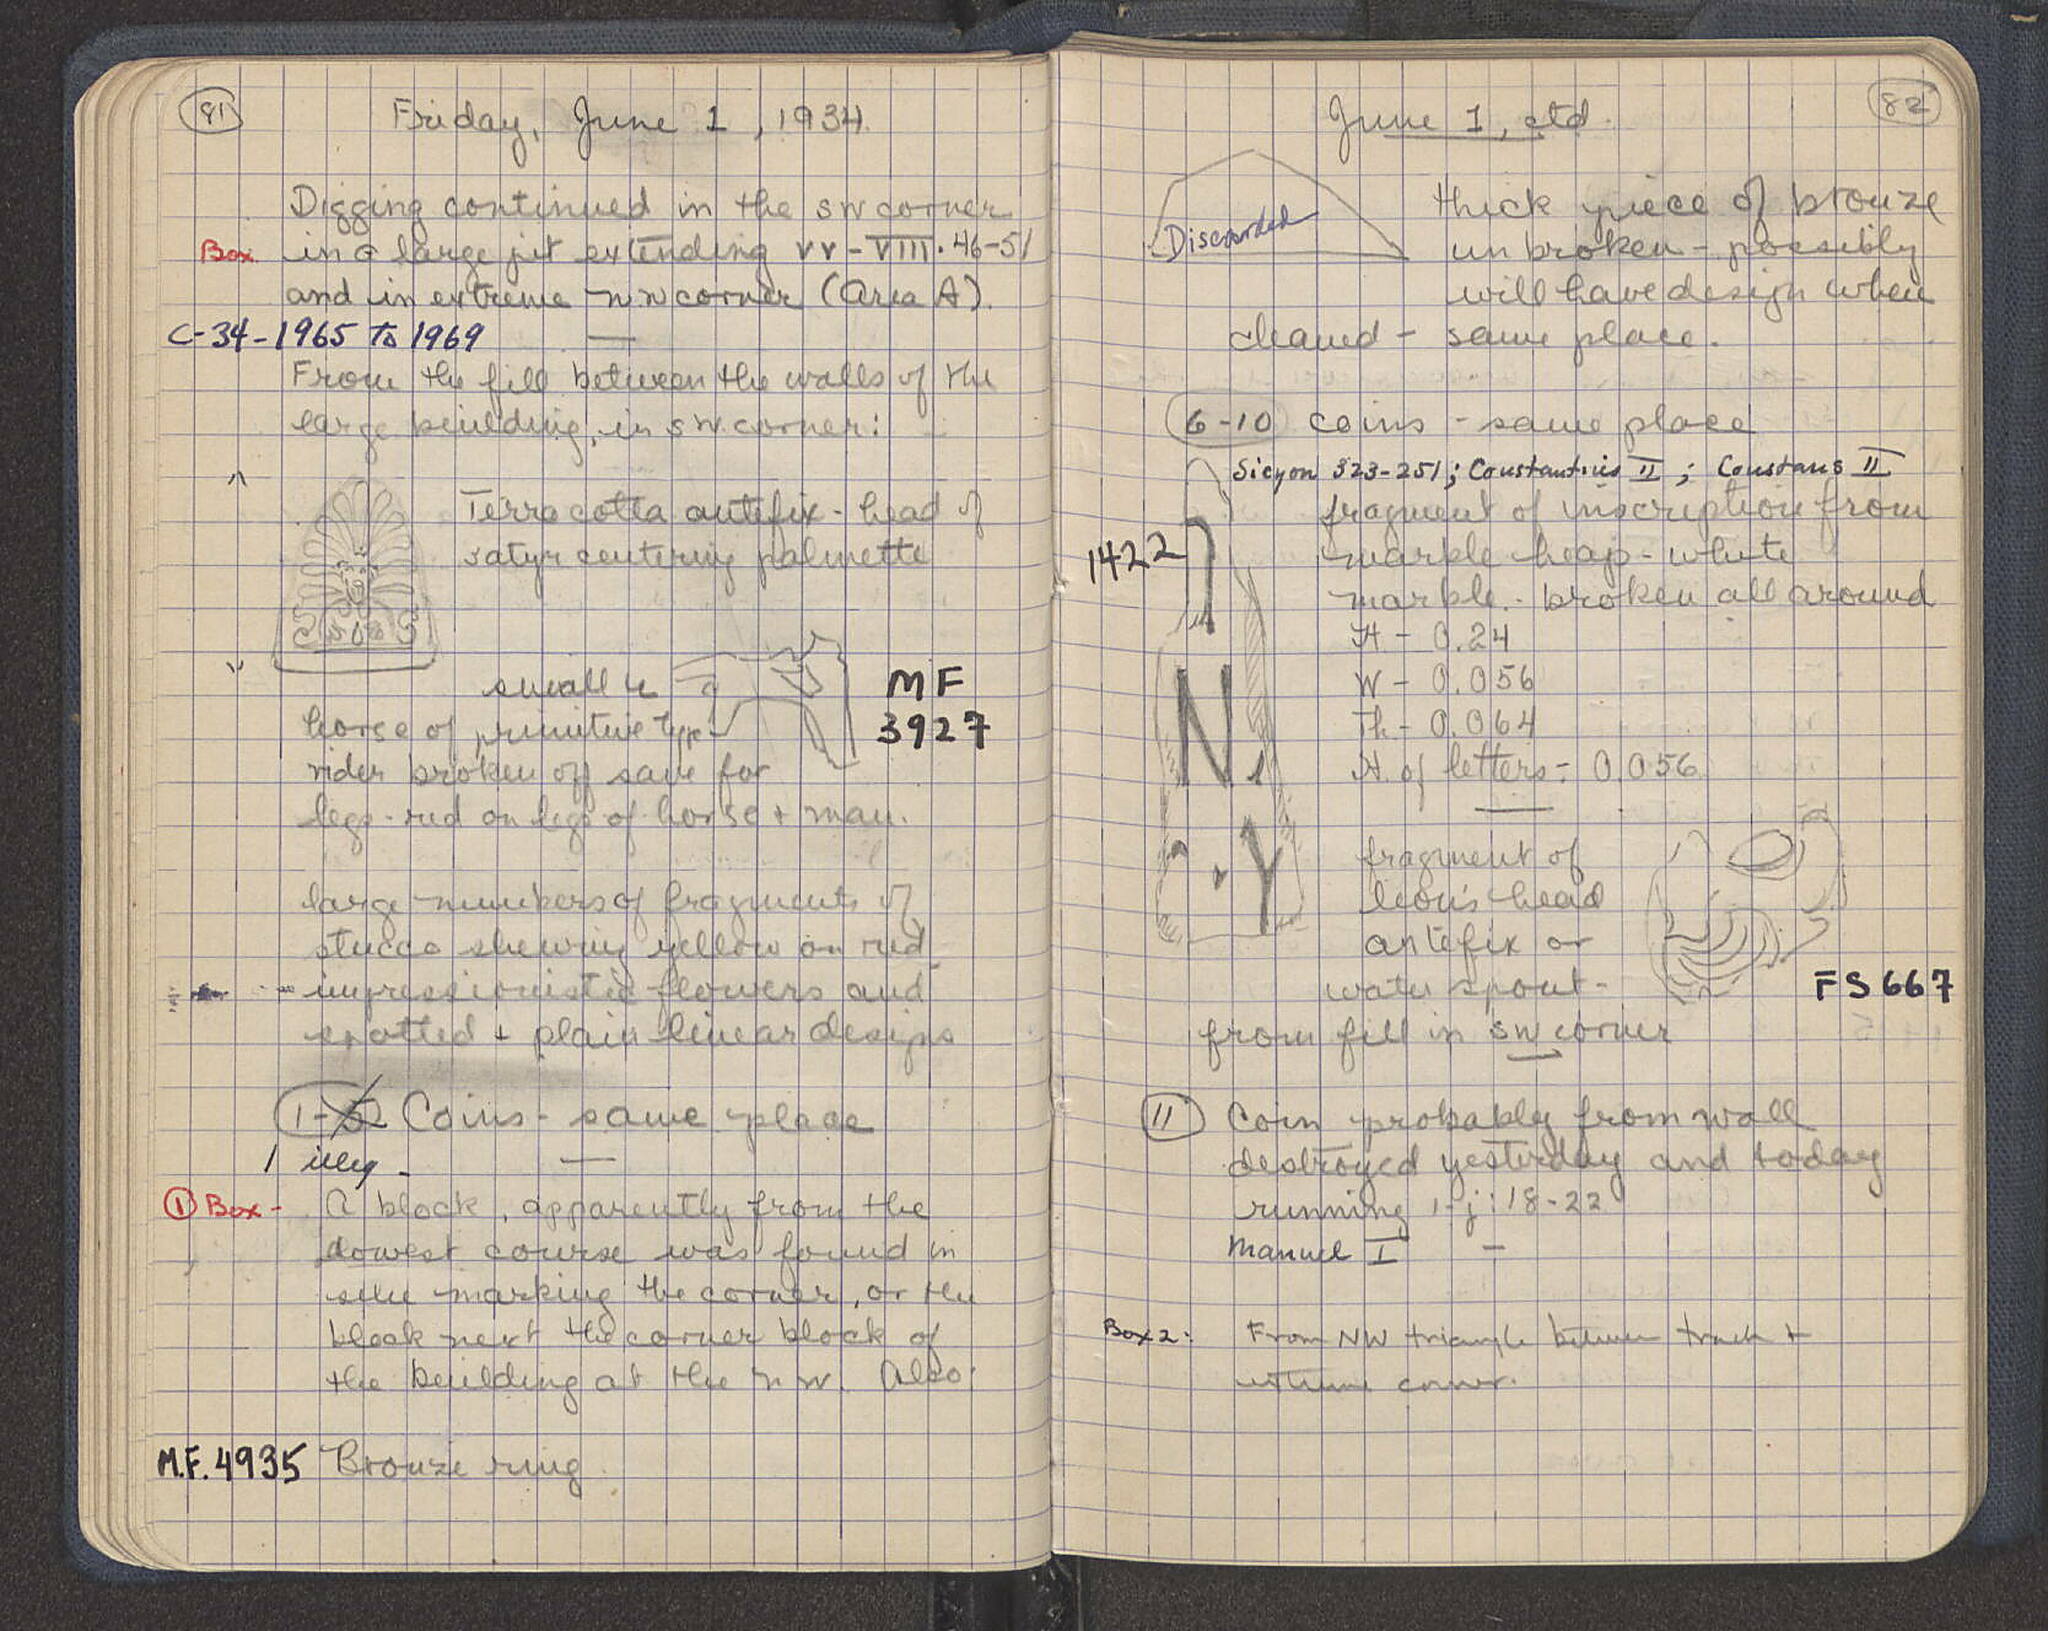 81
Friday, June 1, 1934
Digging continued in the SW corner
Box in a large pit extending VV-VIII. 46-51
and in extreme NW corner (Area A).
C-34-1965 To 1969
From the fill between the walls of the
large building, in SW corner:
Terra cotta antefix - head of
satyr centering palmette
small
horse of primitive type
MF
3927
rider broken off save for
legs - red on legs of horse + man.
large numbers of fragments of
stucco showing yellow on red
impressionistic flowers and
spotted + plain linear designs
1- Coins - same place
1 illeg -
① Box - A block, apparently from the
lowest course was found in
situ marking the corner, or the
block next the corner block of
the building at the NW. Also:
M.F. 4935 Bronze ring.
82
June 1, ctd.
Discarded
thick piece of bronze
unbroken - possibly
will have design when
cleaned - same place.
6-10 coins - same place
Sicyon 323-251; Constantius II; Constans II
1422
fragment of inscription from
marble heap - white
marble - broken all around
H - 0.24
W - 0.056
Th - 0.064
H. of letters - 0.056
N
Y
fragment of
lion's head
antefix or
water spout -
FS 667
from fill in SW corner
11 Coin probably from wall
destroyed yesterday and today
running i-j: 18-22
Manuel I
Box 2: From NW triangle between track +
extreme corner.